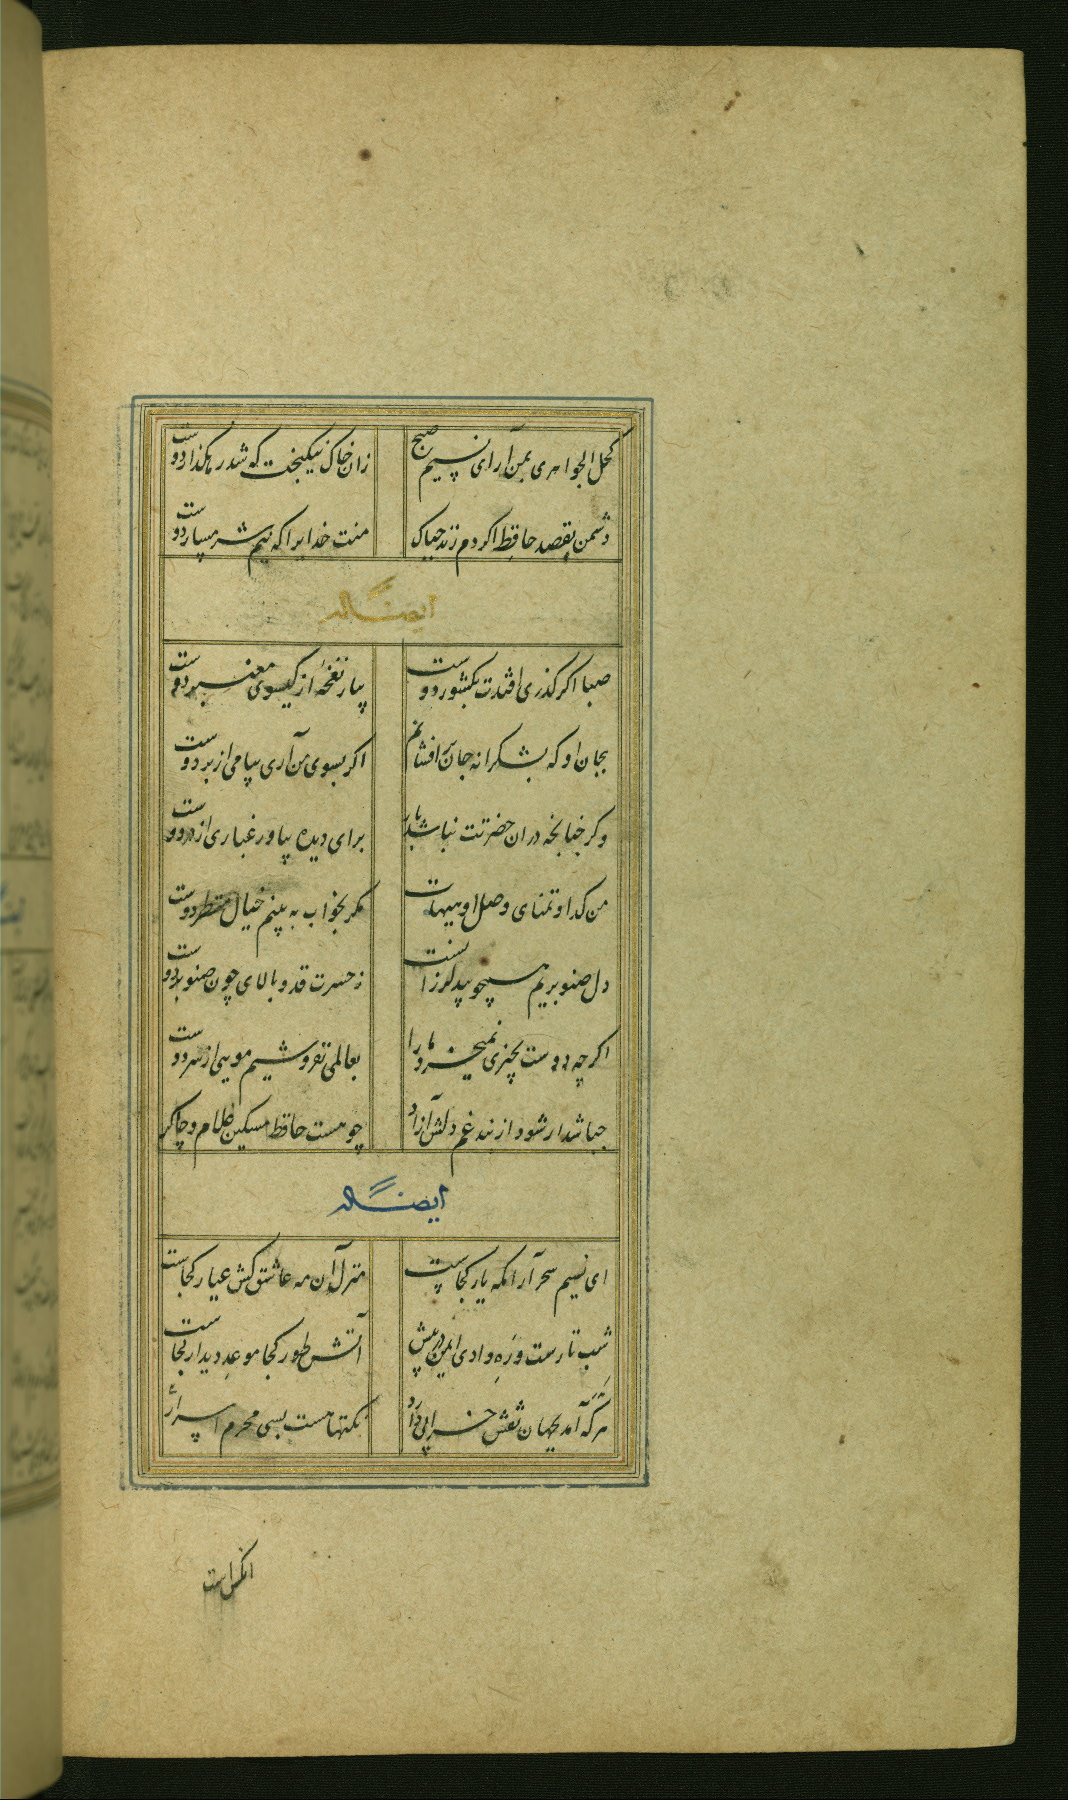 کحل الجواهری بمن آرای نسیم صبح زان خاک نیکبخت که شد رهگذار دوست
دشمن بقصد حافظ اگر دم زند چباک منت خدایرا که نیم شرمسار دوست
ایضاً له
صبا اگر گذری افتدت بکشور دوست بیار نفحهٔ از گیسوی معنبر دوست
بجان او که بشکرانه جان بر افشانم اگر بسوی من آری پیامی از بر دوست
وگر چنانچه دران حضرتت نباشد بار برای دیده بیاور غباری از در دوست
من گدا و تمنای وصل او هیهات مگر بخواب به بینم خیال منظر دوست
دل صنوبریم همچو بید لرزانست ز حسرت قد و بالای چون صنوبر دوست
اگر چه دوست بچیزی نمیخرد ما را بعالمی نفروشیم مویی از سر دوست
چباشد ار شود از بند غم دلش آزاد چو هست حافظ مسکین غلام و چاکر
ایضاً له
ای نسیم سحر آرامگه یار کجاست منزل آن مه عاشق کش عیار کجاست
شب تارست و ره وادی ایمن در پیش آتش طور کجا موعد دیدار کجاست
هر که آمد بجهان نقش خرابی دارد
نکتها هست بسی محرم اسرار
آنکس است